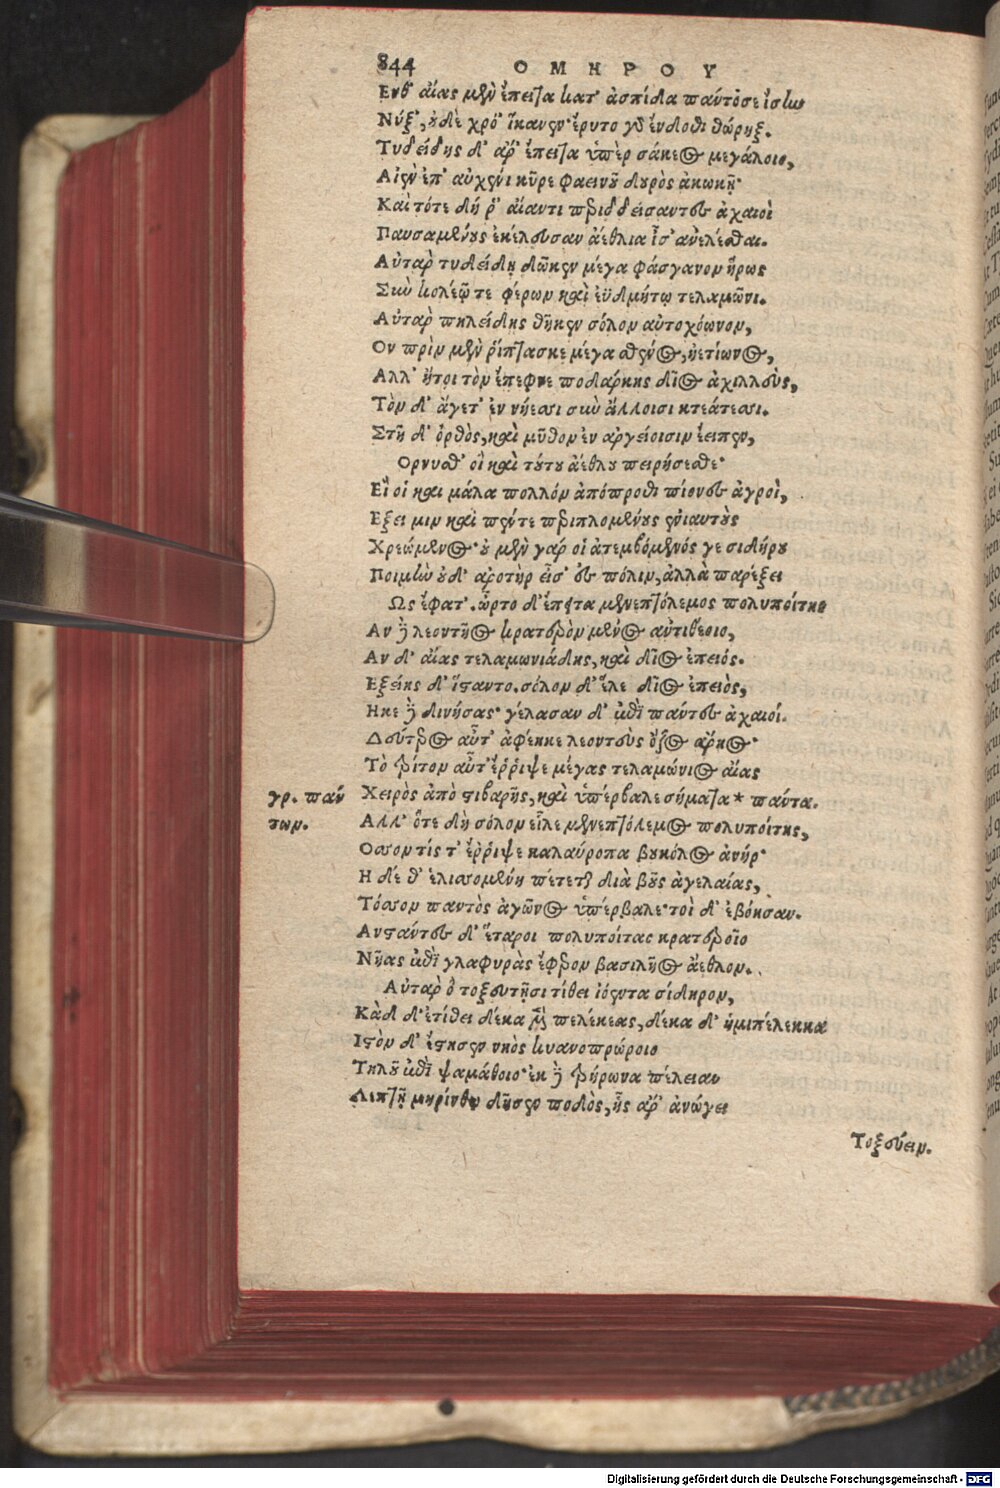 844 ΟΜΗΡΟΥ
Ενθ' αἴας μὲν ἔπειτα κατ' ἀσπίδα πάντοσε ἴσην
Νύξ', οὐδὲ χρό' ἵκανεν· ἔρυτο γὸ ἔνδοθι θώρηξ.
Τυδείδης δ' ἄρ' ἔπειτα ὑπὲρ σάκεος μεγάλοιο,
Αἰὲν ἐπ' αὐχένι κῦρε φαεινοῦ δουρὸς ἀκωκῇ·
Καὶ τότε δή ῥ' αἴαντι περιδδείσαντες ἀχαιοὶ
Παυσαμένους ἐκέλευσαν ἀέθλια ἶσ' ἀνελέσθαι.
Αὐτὰρ τυδείδῃ δῶκεν μέγα φάσγανον ἥρως
Σὺν κολεῷ τε φέρων καὶ ἐϋδμήτῳ τελαμῶνι.
Αὐτὰρ πηλείδης θῆκεν σόλον αὐτοχόωνον,
Ον πρὶν μὲν ῥίπτασκε μέγα σθένος, ἠετίωνος,
Αλλ' ἤτοι τὸν ἔπεφνε ποδάρκης δῖος ἀχιλλεὺς,
Τὸν δ' ἄγετ' ἐν νήεσσι σὺν ἄλλοισι κτεάτεσσι.
Στῆ δ' ὀρθὸς, καὶ μῦθον ἐν ἀργείοισιν ἔειπεν,
Ορνυσθ' οἳ καὶ τούτου ἀέθλου πειρήσεσθε·
Εἴ οἱ καὶ μάλα πολλὸν ἀπόπροθι πίονες ἀγροὶ,
Εξει μιν καὶ πέντε περιπλομένους ἐνιαυτοὺς
Χρεώμενος· οὐ μὲν γάρ οἱ ἀτεμβόμενός γε σιδήρου
Ποιμὴν οὐδ' ἀροτὴρ εἶσ' ἐς πόλιν, ἀλλὰ παρέξει
Ως ἔφατ'. ὦρτο δ' ἔπειτα μενεπτόλεμος πολυποίτης
Αν δὲ λεοντῆος κρατερὸν μένος ἀντιθέοιο,
Αν δ' αἴας τελαμωνιάδης, καὶ δῖος ἐπειός.
Εξείης δ' ἵσταντο. σόλον δ' ἕλε δῖος ἐπειὸς,
Ηκε δὲ δινήσας· γέλασαν δ' ἐπὶ πάντες ἀχαιοί.
Δεύτερος αὖτ' ἀφέηκε λεοντεὺς ὄζος ἄρηος·
Τὸ τρίτον αὖτ' ἔρριψε μέγας τελαμώνιος αἴας
γρ. πάν Χειρὸς ἀπὸ στιβαρῆς, καὶ ὑπέρβαλε σήματα * πάντα.
των. Αλλ' ὅτε δὴ σόλον εἷλε μενεπτόλεμος πολυποίτης,
Οσσον τίς τ' ἔρριψε καλαύροπα βουκόλος ἀνήρ·
Η δέ θ' ἑλισσομένη πέτεται διὰ βοῦς ἀγελαίας,
Τόσσον παντὸς ἀγῶνος ὑπέρβαλε· τοὶ δ' ἐβόησαν.
Ανστάντες δ' ἕταροι πολυποίταο κρατεροῖο
Νῆας ἐπὶ γλαφυρὰς ἔφερον βασιλῆος ἄεθλον.
Αὐτὰρ ὁ τοξευτῇσι τίθει ἰόεντα σίδηρον,
Κὰδ δ' ἐτίθει δέκα μὲν πελέκεας, δέκα δ' ἡμιπέλεκκα
Ιστὸν δ' ἔστησεν νηὸς κυανοπρώροιο
Τηλοῦ ἐπὶ ψαμάθοιο· ἐκ δὲ τρήρωνα πέλειαν
Λεπτῇ μηρίνθῳ δῆσεν ποδὸς, ἧς ἄρ' ἀνώγει
Τοξεύειν.
Digitalisierung gefördert durch die Deutsche Forschungsgemeinschaft - DFG